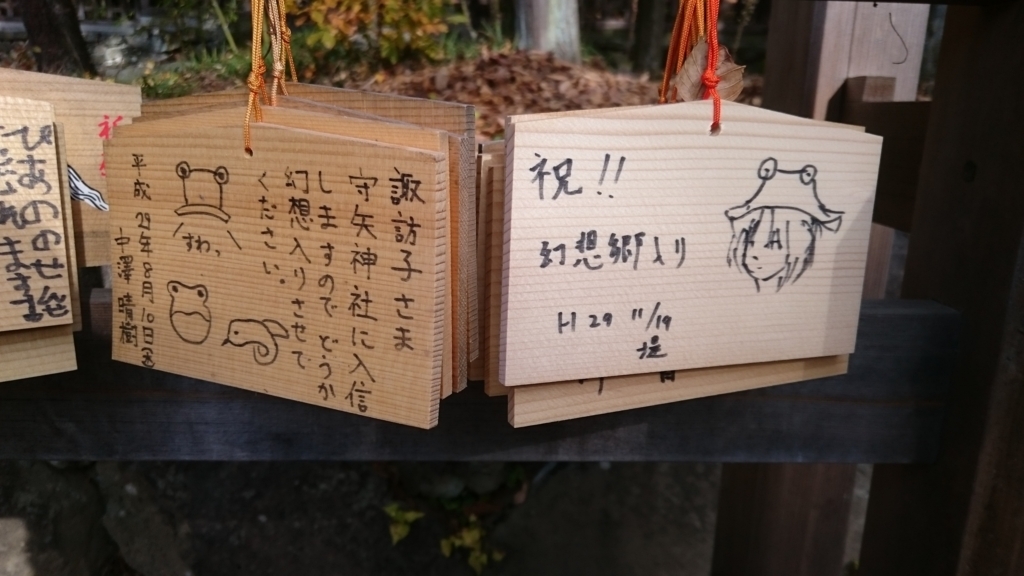 諏訪子さま
守矢神社に入信
しますのでどうか
幻想入りさせて
ください。
すわっ
平成29年8月10日(木)
中澤 晴樹
祝!!
幻想郷入り
H29 11/19